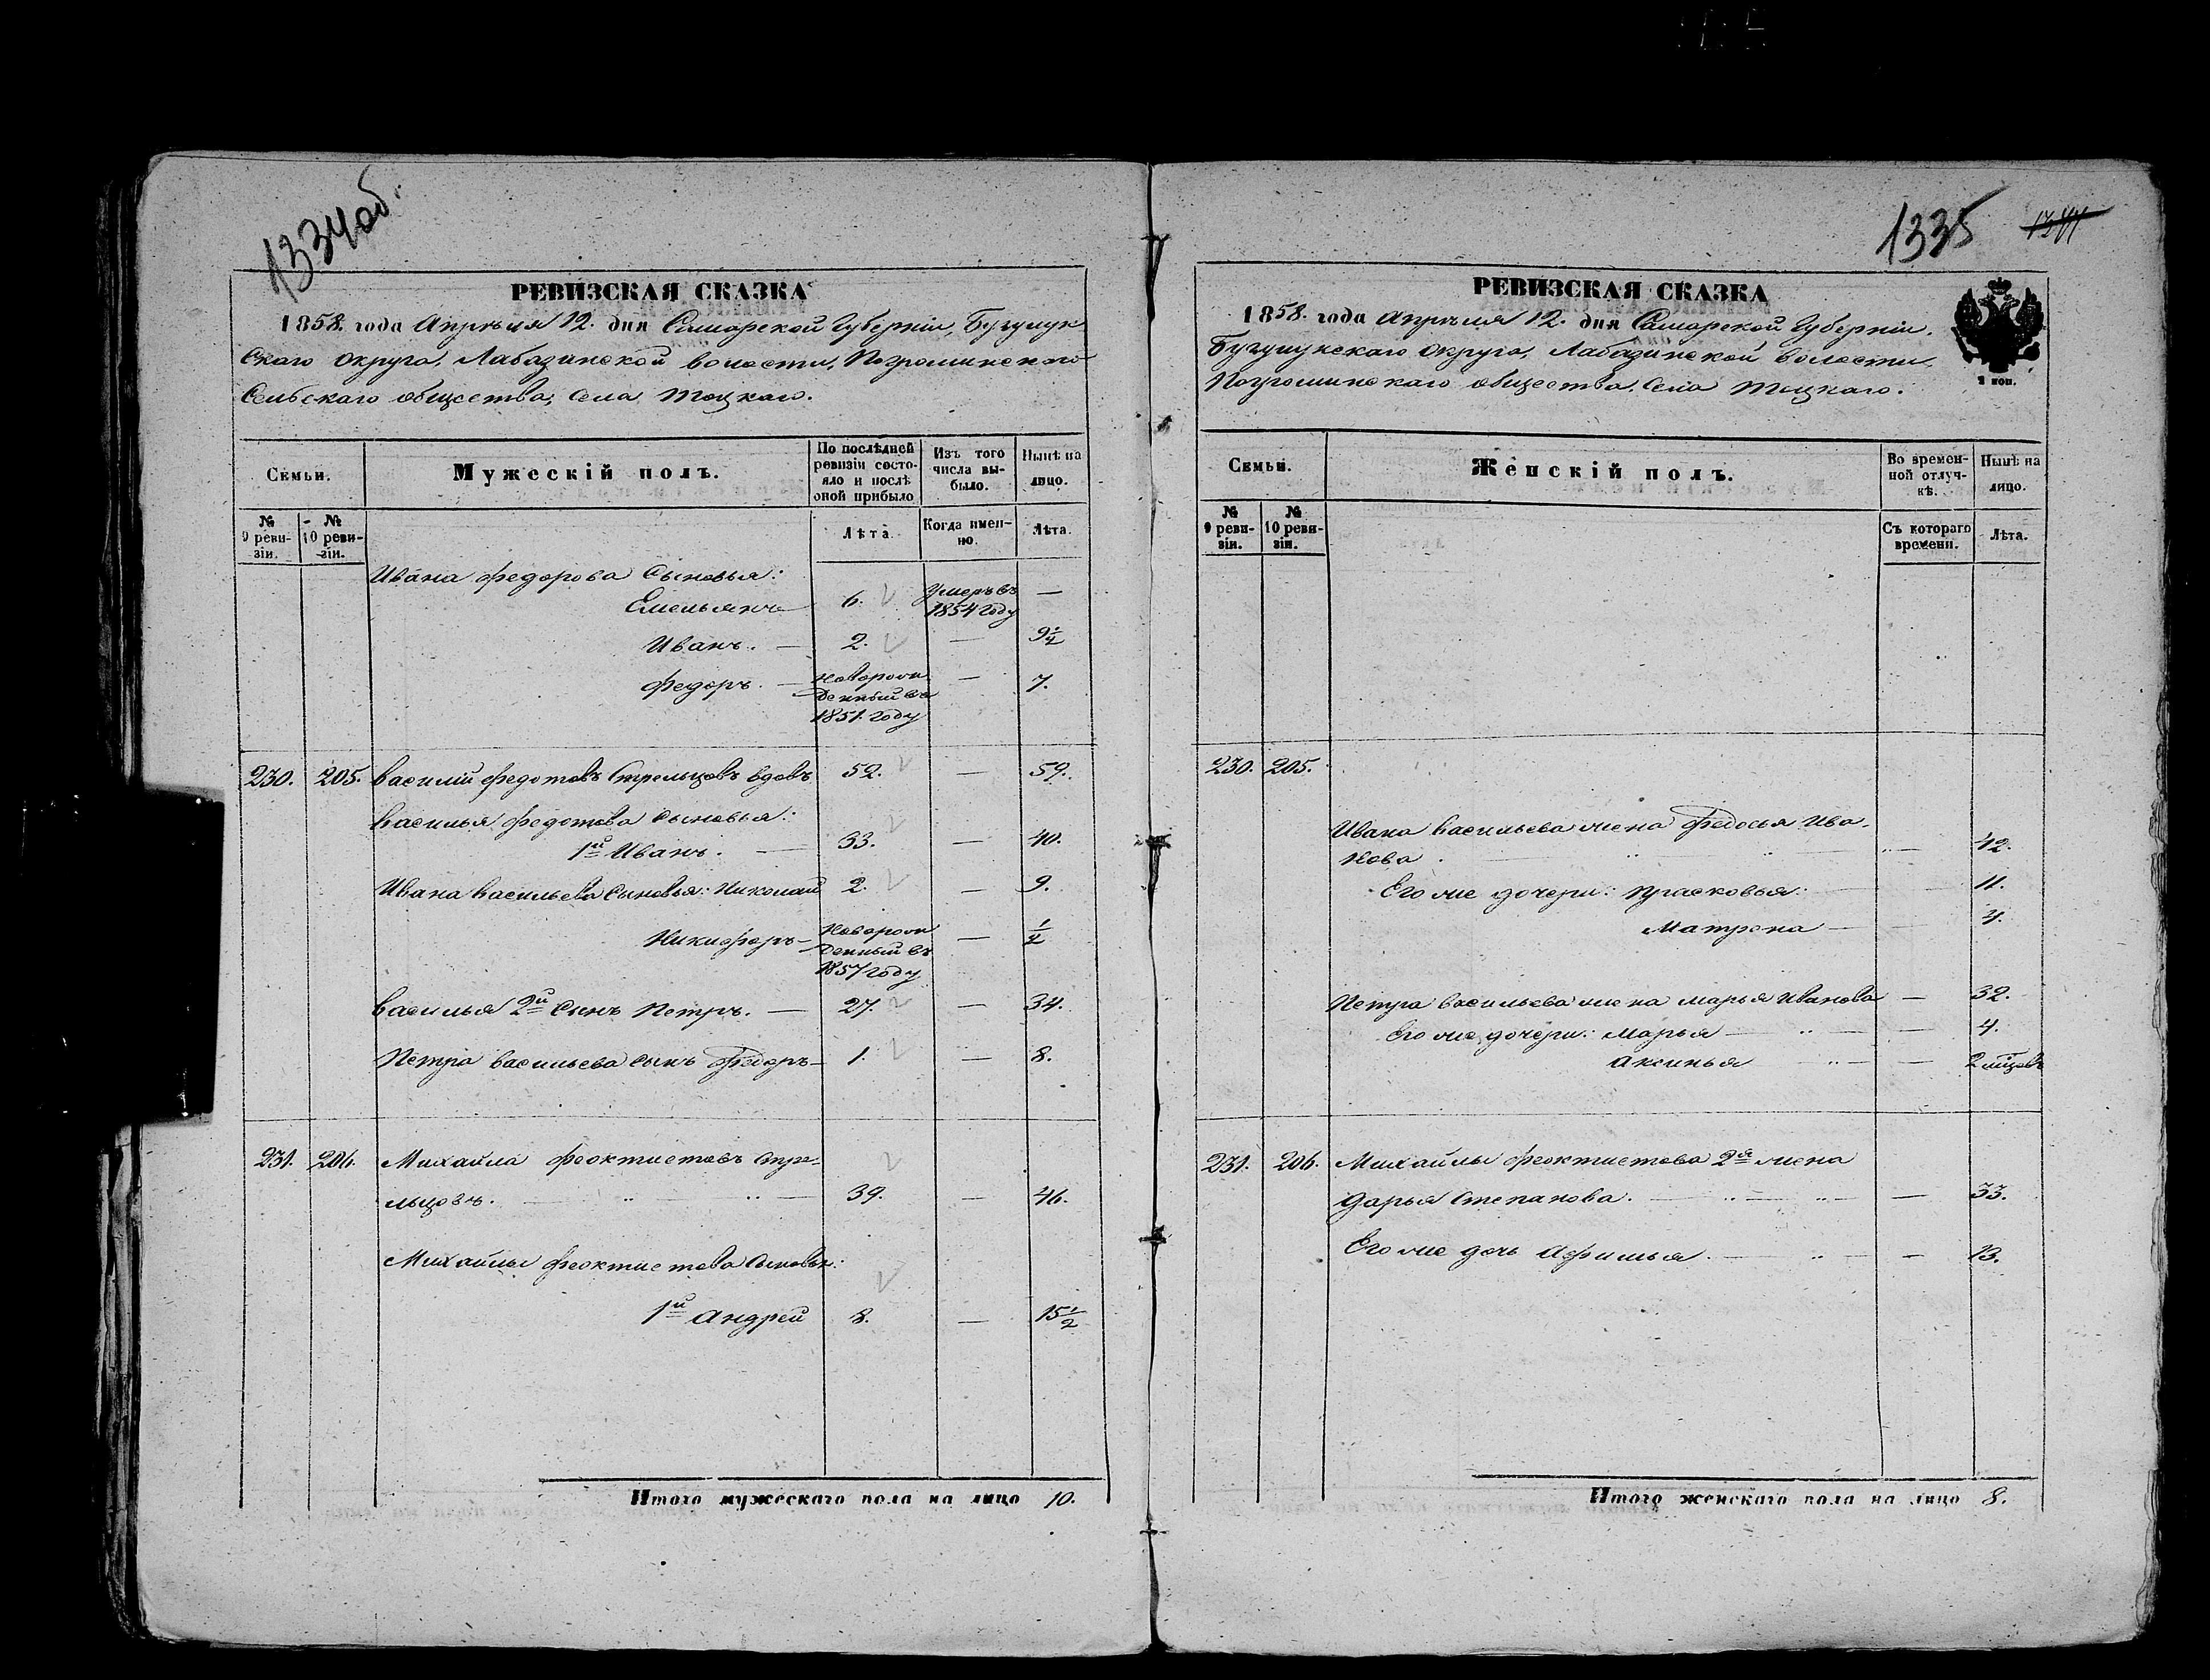 1334об.
РЕВИЗСКАЯ СКАЗКА
1858. года Апрѣля 12. дня Самарской Губерніи, Бузулук
скаго округа, Лабазинской волости, Погроминского
Сельскаго общества, села Тоцкаго.
Семьи.
Мужескій полъ.
По послѣдней
ревизіи состо-
яло и послѣ
оной прибыло
Изъ того
числа вы-
было.
Нынѣ на
лицо.
№
9 реви-
зіи.
№
10 реви-
зіи.
Лѣта
Когда имен-
но.
Лѣта.
Ивана Федорова Сыновья:
Емельянъ 6. Умеръ въ 1854 году —
Иванъ. — 2. — 9½
Федоръ. — новорож
денный въ — 7.
1851. году
230. 205. Василій Федотовъ Стрельцовъ вдовъ 52. — 59.
Василья Федотова сыновья:
1й Иванъ. — 33. — 40.
Ивана Васильева сыновья: Николай 2. — 9.
Никифоръ — Новорож
денный въ — ½
1857 году
Василья 2й сынъ Петръ. — 27. — 34.
Петра Васильева сынъ Федоръ — 1. — 8.
231. 206. Михайла Феоктистовъ Стре-
льцовъ. — 39. — 46.
Михайлы Феоктистова Сыновья:
1й Андрей 8. — 15½
Итого мужескаго пола на лицо 10.
1335 1344
РЕВИЗСКАЯ СКАЗКА
1858. года Апрѣля 12. дня Самарской Губерніи.
Бузулукскаго округа, Лабазинской волости,
Погроминскаго общества, села Тоцкаго.
2 коп.
Семьи.
Женскій полъ.
Во времен-
ной отлуч-
кѣ.
Нынѣ на
лицо.
№
9 реви-
зіи.
№
10 реви-
зіи.
Съ котораго
времени.
Лѣта.
230. 205.
Ивана Васильева жена Федосья Ива-
нова. — 42.
Его же дочери: Прасковья: — 11.
Матрена — 4.
Петра Васильева жена Марья Иванова — 32.
Его же дочери: Марья — 4.
Аксинья — 2 мѣсяцъ
231. 206. Михайлы Феоктистова 2я жена
Дарья Степанова. — 33.
Его же дочь Афимья. — 13.
Итого женскаго пола на лицо 8.